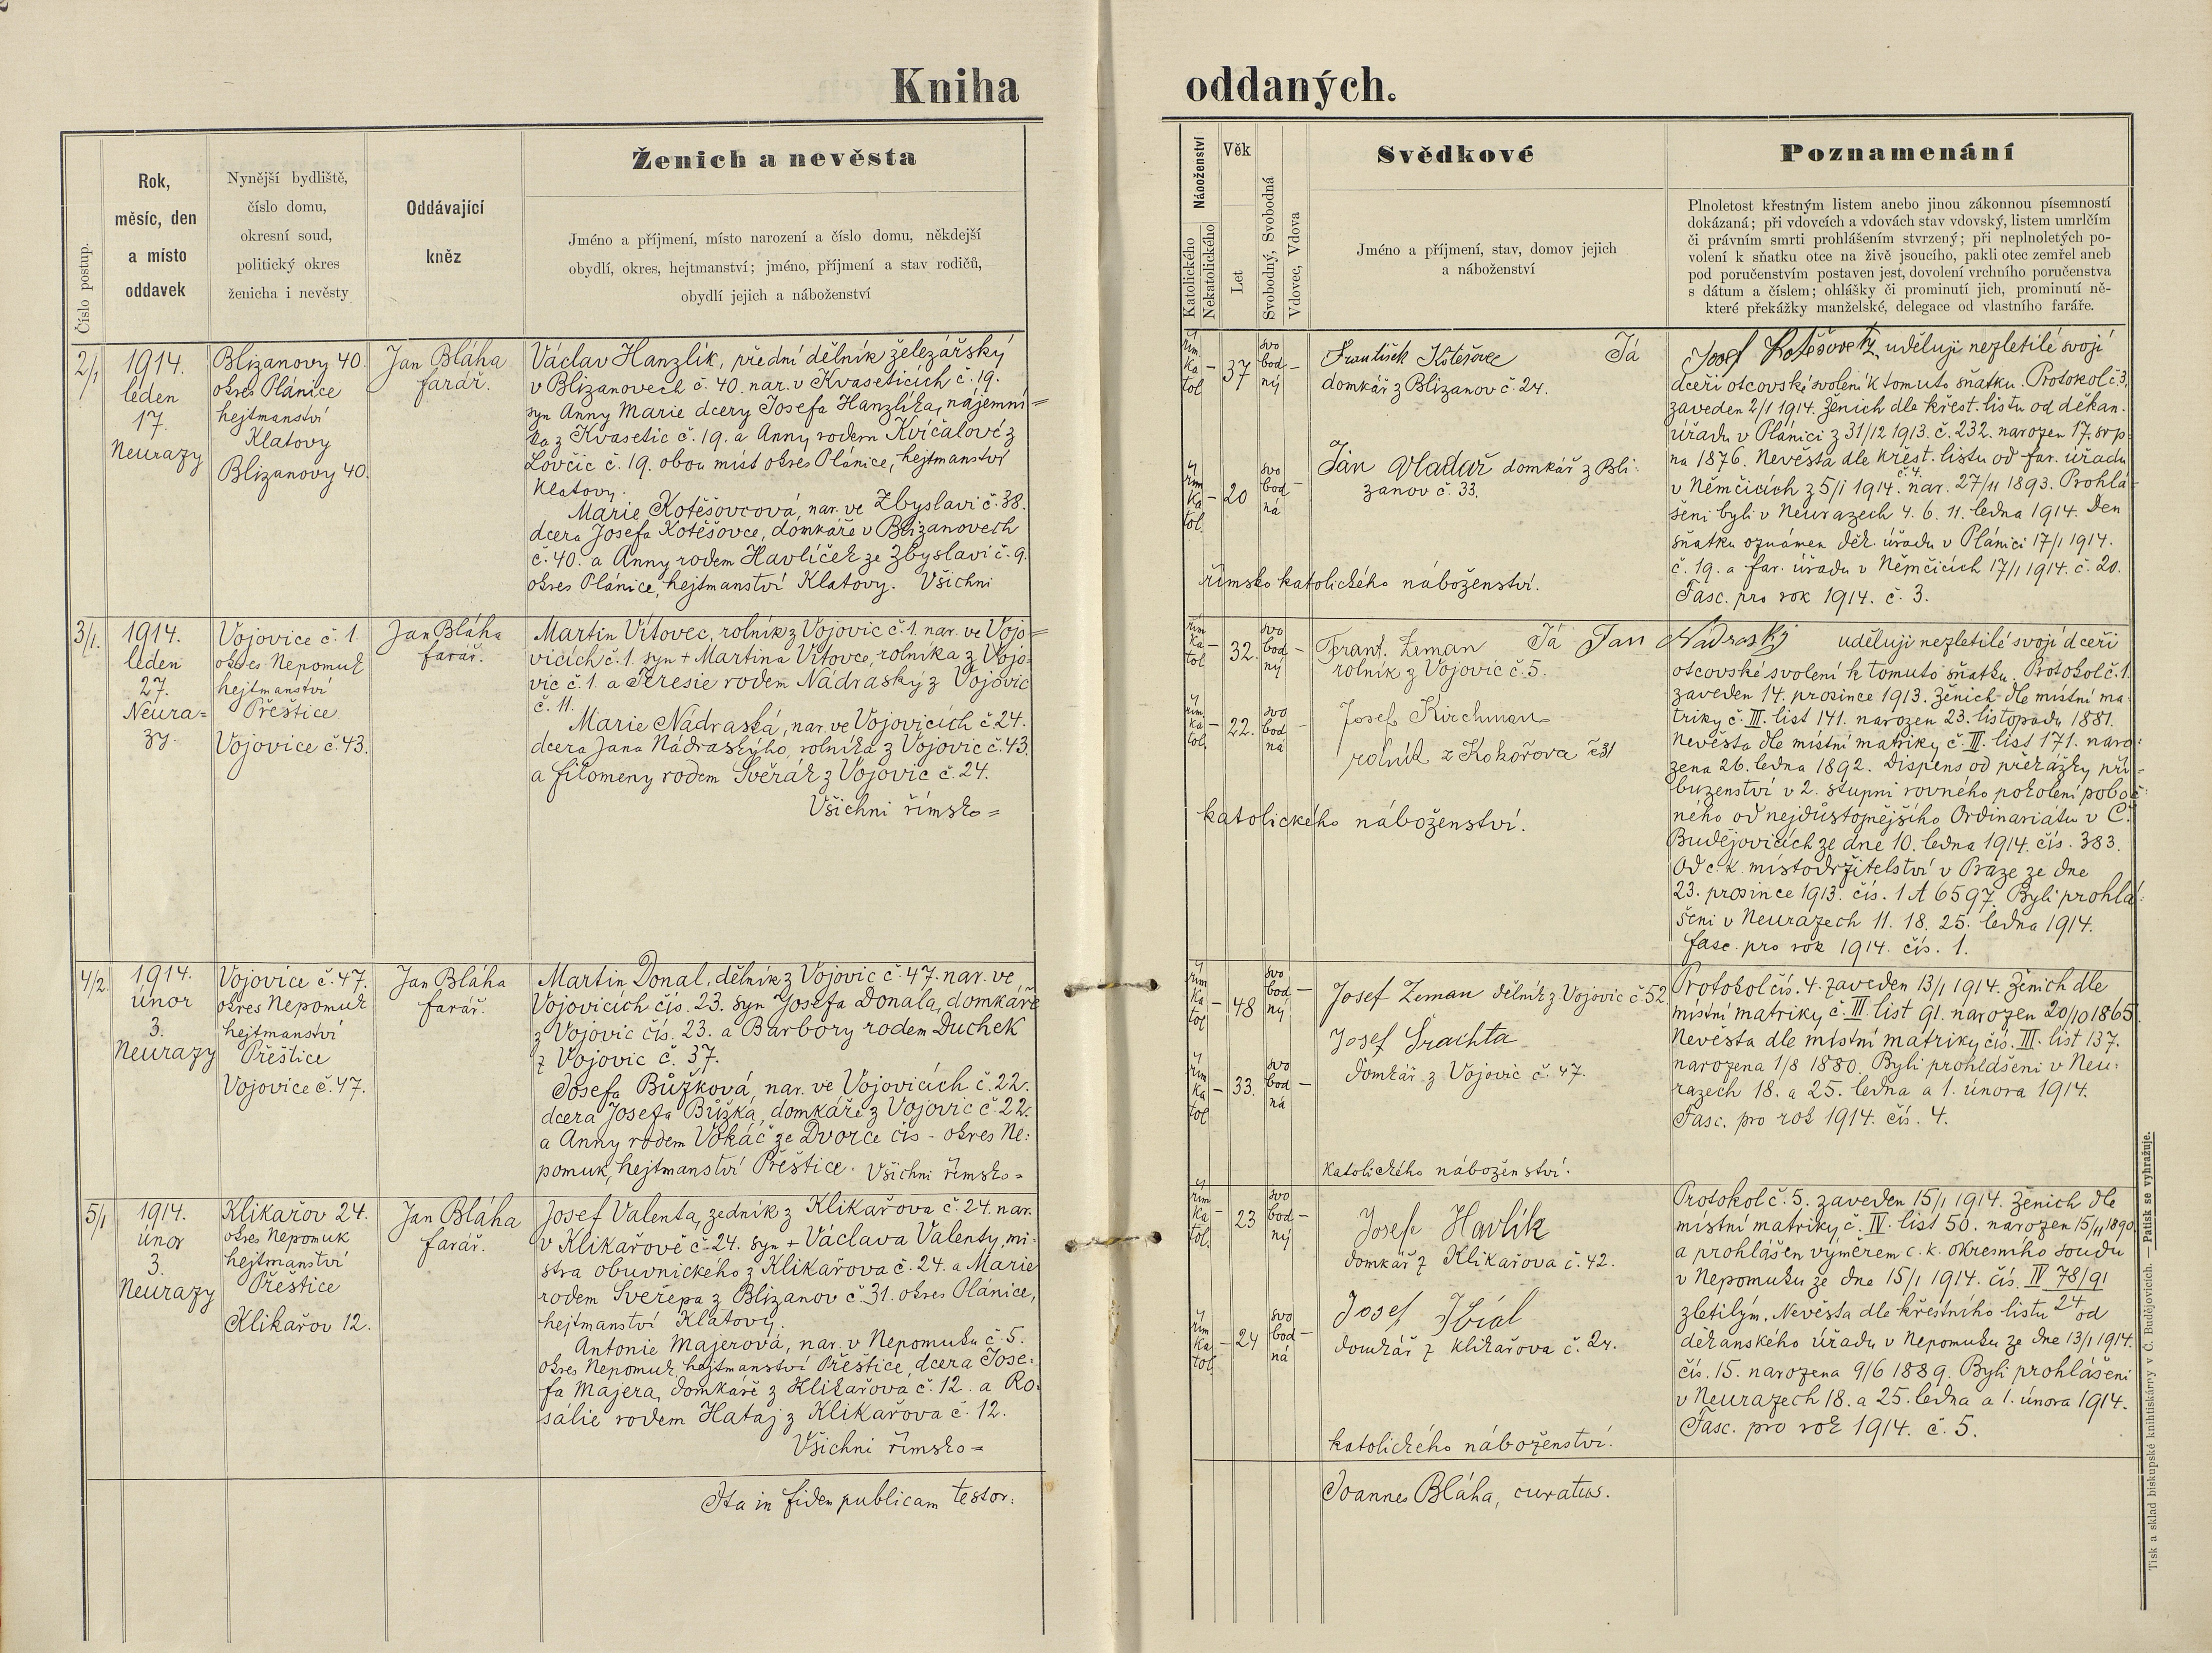 Kniha oddaných.
Číslo postup.
Rok,
měsíc, den
a místo
oddavek
Nynější bydliště,
číslo domu,
okresní soud,
politický okres
ženicha i nevěsty
Oddávající
kněz
Ženich a nevěsta
Jméno a příjmení, místo narození a číslo domu, někdejší
obydlí, okres, hejtmanství; jméno, příjmení a stav rodičů,
obydlí jejich a náboženství
Náboženství
Katolického
Nekatolického
Věk
Let
Svobodný, Svobodná
Vdovec, Vdova
Svědkové
Jméno a příjmení, stav, domov jejich
a náboženství
Poznamenání
Plnoletost křestným listem anebo jinou zákonnou písemností
dokázaná; při vdovcích a vdovách stav vdovský, listem umrlčím
či právním smrti prohlášením stvrzený; při neplnoletých po-
volení k sňatku otce na živě jsoucího, pakli otec zemřel aneb
pod poručenstvím postaven jest, dovolení vrchního poručenstva
s dátum a číslem; ohlášky či prominutí jich, prominutí ně-
které překážky manželské, delegace od vlastního faráře.
2/1
1914.
leden
17.
Neurazy
Blizanovy 40.
okres Plánice
hejtmanství
Klatovy
Blizanovy 40.
Jan Bláha
farář.
Václav Hanzlík, přední dělník železářský
v Blizanovech č. 40. nar. v Kvaseticích č. 19.
syn Anny Marie dcery Josefa Hanzlíka, nájemní=
ka z Kvasetic č. 19. a Anny rodem Kvíčalové z
Lovčic č. 19. obou míst okres Plánice, hejtmanství
Klatovy.
Marie Kotěšovcová, nar. ve Zbyslavi č. 38.
dcera Josefa Kotěšovce, domkáře v Blizanovech
č. 40. a Anny rodem Havlíček ze Zbyslavi č. 9.
okres Plánice, hejtmanství Klatovy. Všichni
řím
ka
tol
37
svo
bod
ný
řím
ka
tol.
20
svo
bod
ná
František Kotěšovec
domkář z Blizanov č. 24.
Jan Vladař domkář z Bli-
zanov č. 33.
římsko katolického náboženství.
Já Josef Kotěšovetz uděluji nezletilé svojí
dceři otcovské svolení k tomuto sňatku. Protokol č. 3.
zaveden 2/1 1914. Ženich dle křest. listu od děkan.
úřadu v Plánici z 31/12 1913. č. 232. narozen 17. srp-
na 1876. Nevěsta dle křest. listu od far. úřadu
v Němčicích z 5/1 1914. č. 4. nar. 27/11 1893. Prohlá-
šeni byli v Neurazech 4. 6. 11. ledna 1914. Den
sňatku oznámen děk. úřadu v Plánici 17/1 1914.
č. 19. a far. úřadu v Němčicích 17/1 1914. č. 20.
Fasc. pro rok 1914. č. 3.
3/1.
1914.
leden
27.
Neura=
zy.
Vojovice č. 1.
okres Nepomuk
hejtmanství
Přeštice
Vojovice č. 43.
Jan Bláha
farář.
Martin Vítovec, rolník z Vojovic č. 1. nar. ve Vojo=
vicích č. 1. syn + Martina Vítovce, rolníka z Vojo-
vic č. 1. a Teresie rodem Nádraský z Vojovic
č. 11.
Marie Nádraská, nar. ve Vojovicích č. 24.
dcera Jana Nádraského, rolníka z Vojovic č. 43.
a Filomeny rodem Svěrák z Vojovic č. 24.
Všichni římsko=
řím
ka
tol
32.
svo
bod
ný
řím
ka
tol.
22.
svo
bod
ná
Frant. Zeman
rolník z Vojovic č. 5.
Josef Kirchman
rolník z Kokořova č 31
katolického náboženství.
Já Jan Nádraský uděluji nezletilé svojí dceři
otcovské svolení k tomuto sňatku. Protokol č. 1.
zaveden 14. prosince 1913. Ženich dle místní ma-
triky č. III. list 141. narozen 23. listopadu 1881.
Nevěsta dle místní matriky č. III. list 171. naro-
zena 26. ledna 1892. Dispens od překážky pří-
buzenství v 2. stupni rovného pokolení poboč-
ného od nejdůstojnějšího Ordinariátu v Č.
Budějovicích ze dne 10. ledna 1914. čís. 383.
Od c. k. místodržitelství v Praze ze dne
23. prosince 1913. čís. 1 A 6597. Byli prohlá-
šeni v Neurazech 11. 18. 25. ledna 1914.
Fasc. pro rok 1914. čís. 1.
4/2.
1914.
únor
3.
Neurazy
Vojovice č. 47.
okres Nepomuk
hejtmanství
Přeštice
Vojovice č. 47.
Jan Bláha
farář.
Martin Donal, dělník z Vojovic č. 47. nar. ve
Vojovicích čís. 23. syn Josefa Donala, domkáře
z Vojovic čís. 23. a Barbory rodem Duchek
z Vojovic č. 37.
Josefa Bůžková, nar. ve Vojovicích č. 22.
dcera Josefa Bůžka, domkáře z Vojovic č. 22.
a Anny rodem Vokáč ze Dvorce čís - okres Ne-
pomuk, hejtmanství Přeštice. Všichni římsko=
řím
ka
tol
48
svo
bod
ný
řím
ka
tol
33.
svo
bod
ná
Josef Zeman dělník z Vojovic č. 52.
Josef Šrachta
domkář z Vojovic č. 47.
katolického náboženství.
Protokol čís. 4. zaveden 13/1 1914. Ženich dle
místní matriky č. III. list 91. narozen 20/10 1865.
Nevěsta dle místní matriky čís. III. list 137.
narozena 1/8 1880. Byli prohlášeni v Neu-
razech 18. a 25. ledna a 1. února 1914.
Fasc. pro rok 1914. čís. 4.
5/1
1914.
únor
3.
Neurazy
Klikařov 24.
okres Nepomuk
hejtmanství
Přeštice
Klikařov 12.
Jan Bláha
farář.
Josef Valenta, zedník z Klikařova č. 24. nar.
v Klikařově č. 24. syn + Václava Valenty, mi-
stra obuvnického z Klikařova č. 24. a Marie
rodem Sveřepa z Blizanov č. 31. okres Plánice,
hejtmanství Klatovy.
Antonie Majerová, nar. v Nepomuku č. 5.
okres Nepomuk, hejtmanství Přeštice, dcera Jose-
fa Majera, domkáře z Klikařova č. 12. a Ro-
salie rodem Hataj z Klikařova č. 12.
Všichni římsko=
řím
ka
tol.
23
svo
bod
ný
řím
ka
tol.
24
svo
bod
ná
Josef Havlík
domkář z Klikařova č. 42.
Josef
domkář z Klikařova č. 24.
katolického náboženství.
Protokol č. 5. zaveden 15/1 1914. Ženich dle
místní matriky č. IV. list 50. narozen 15/11 1890
a prohlášen výměrem c. k. okresního soudu
v Nepomuku ze dne 15/1 1914. čís. IV 78/91
24
zletilým. Nevěsta dle křestního listu od
děkanského úřadu v Nepomuku ze dne 13/1 1914.
čís. 15. narozena 9/6 1889. Byli prohlášeni
v Neurazech 18. a 25. ledna a 1. února 1914.
Fasc. pro rok 1914. č. 5.
Ita in fidem publicam testor:
Joannes Bláha, curatus.
Tisk a sklad biskupské knihtiskárny v Č. Budějovicích. — Patisk se vyhražuje.